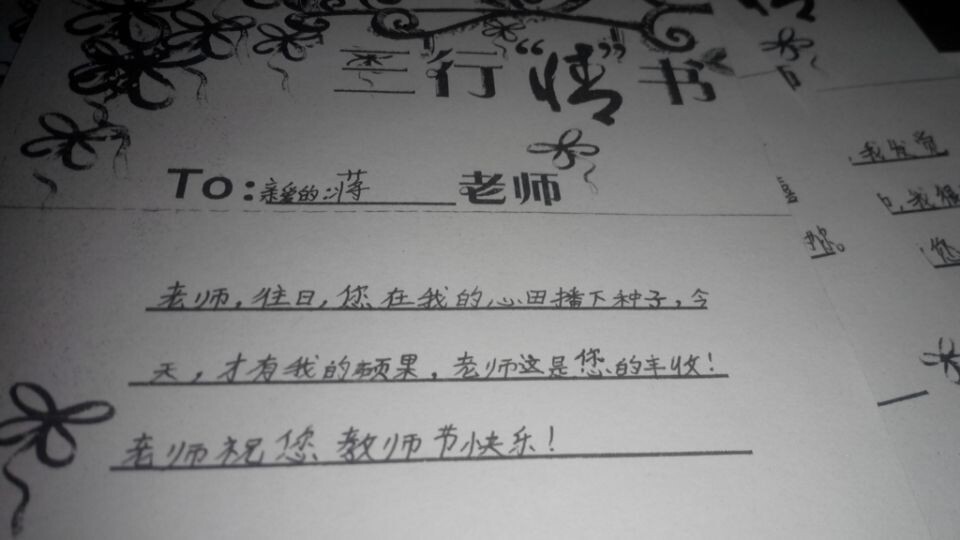 三行“情”书
To:亲爱的 老师
老师,往日,您在我的心田播下种子,今
天,才有我的硕果,老师这是您的丰收!
老师祝您教师节快乐!
我发觉
我很
您。
您